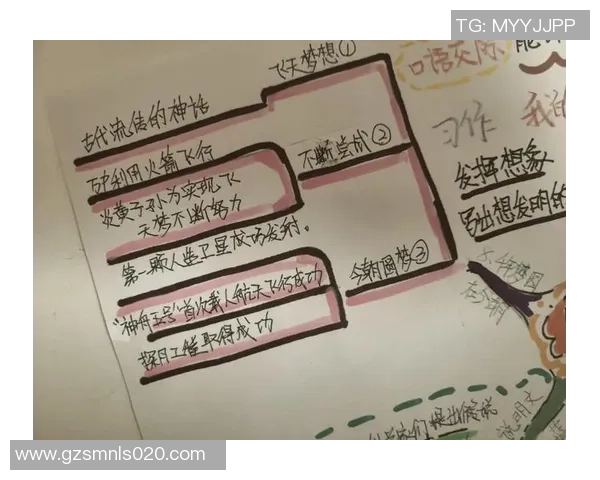 TG: MYYJJPP
飞天梦想①
古代流传的神话
万户利用火箭飞行
炎黄子孙为实现飞
天梦不断努力
不断尝试②
第一颗人造卫星成功发射。
"神舟五号"首次载人航天飞行成功
探月工程取得成功
今朝圆梦③
口语交际
习作
我的
发挥想象
写出想发明的
提出假说
说明文
www.gzsmnls020.com